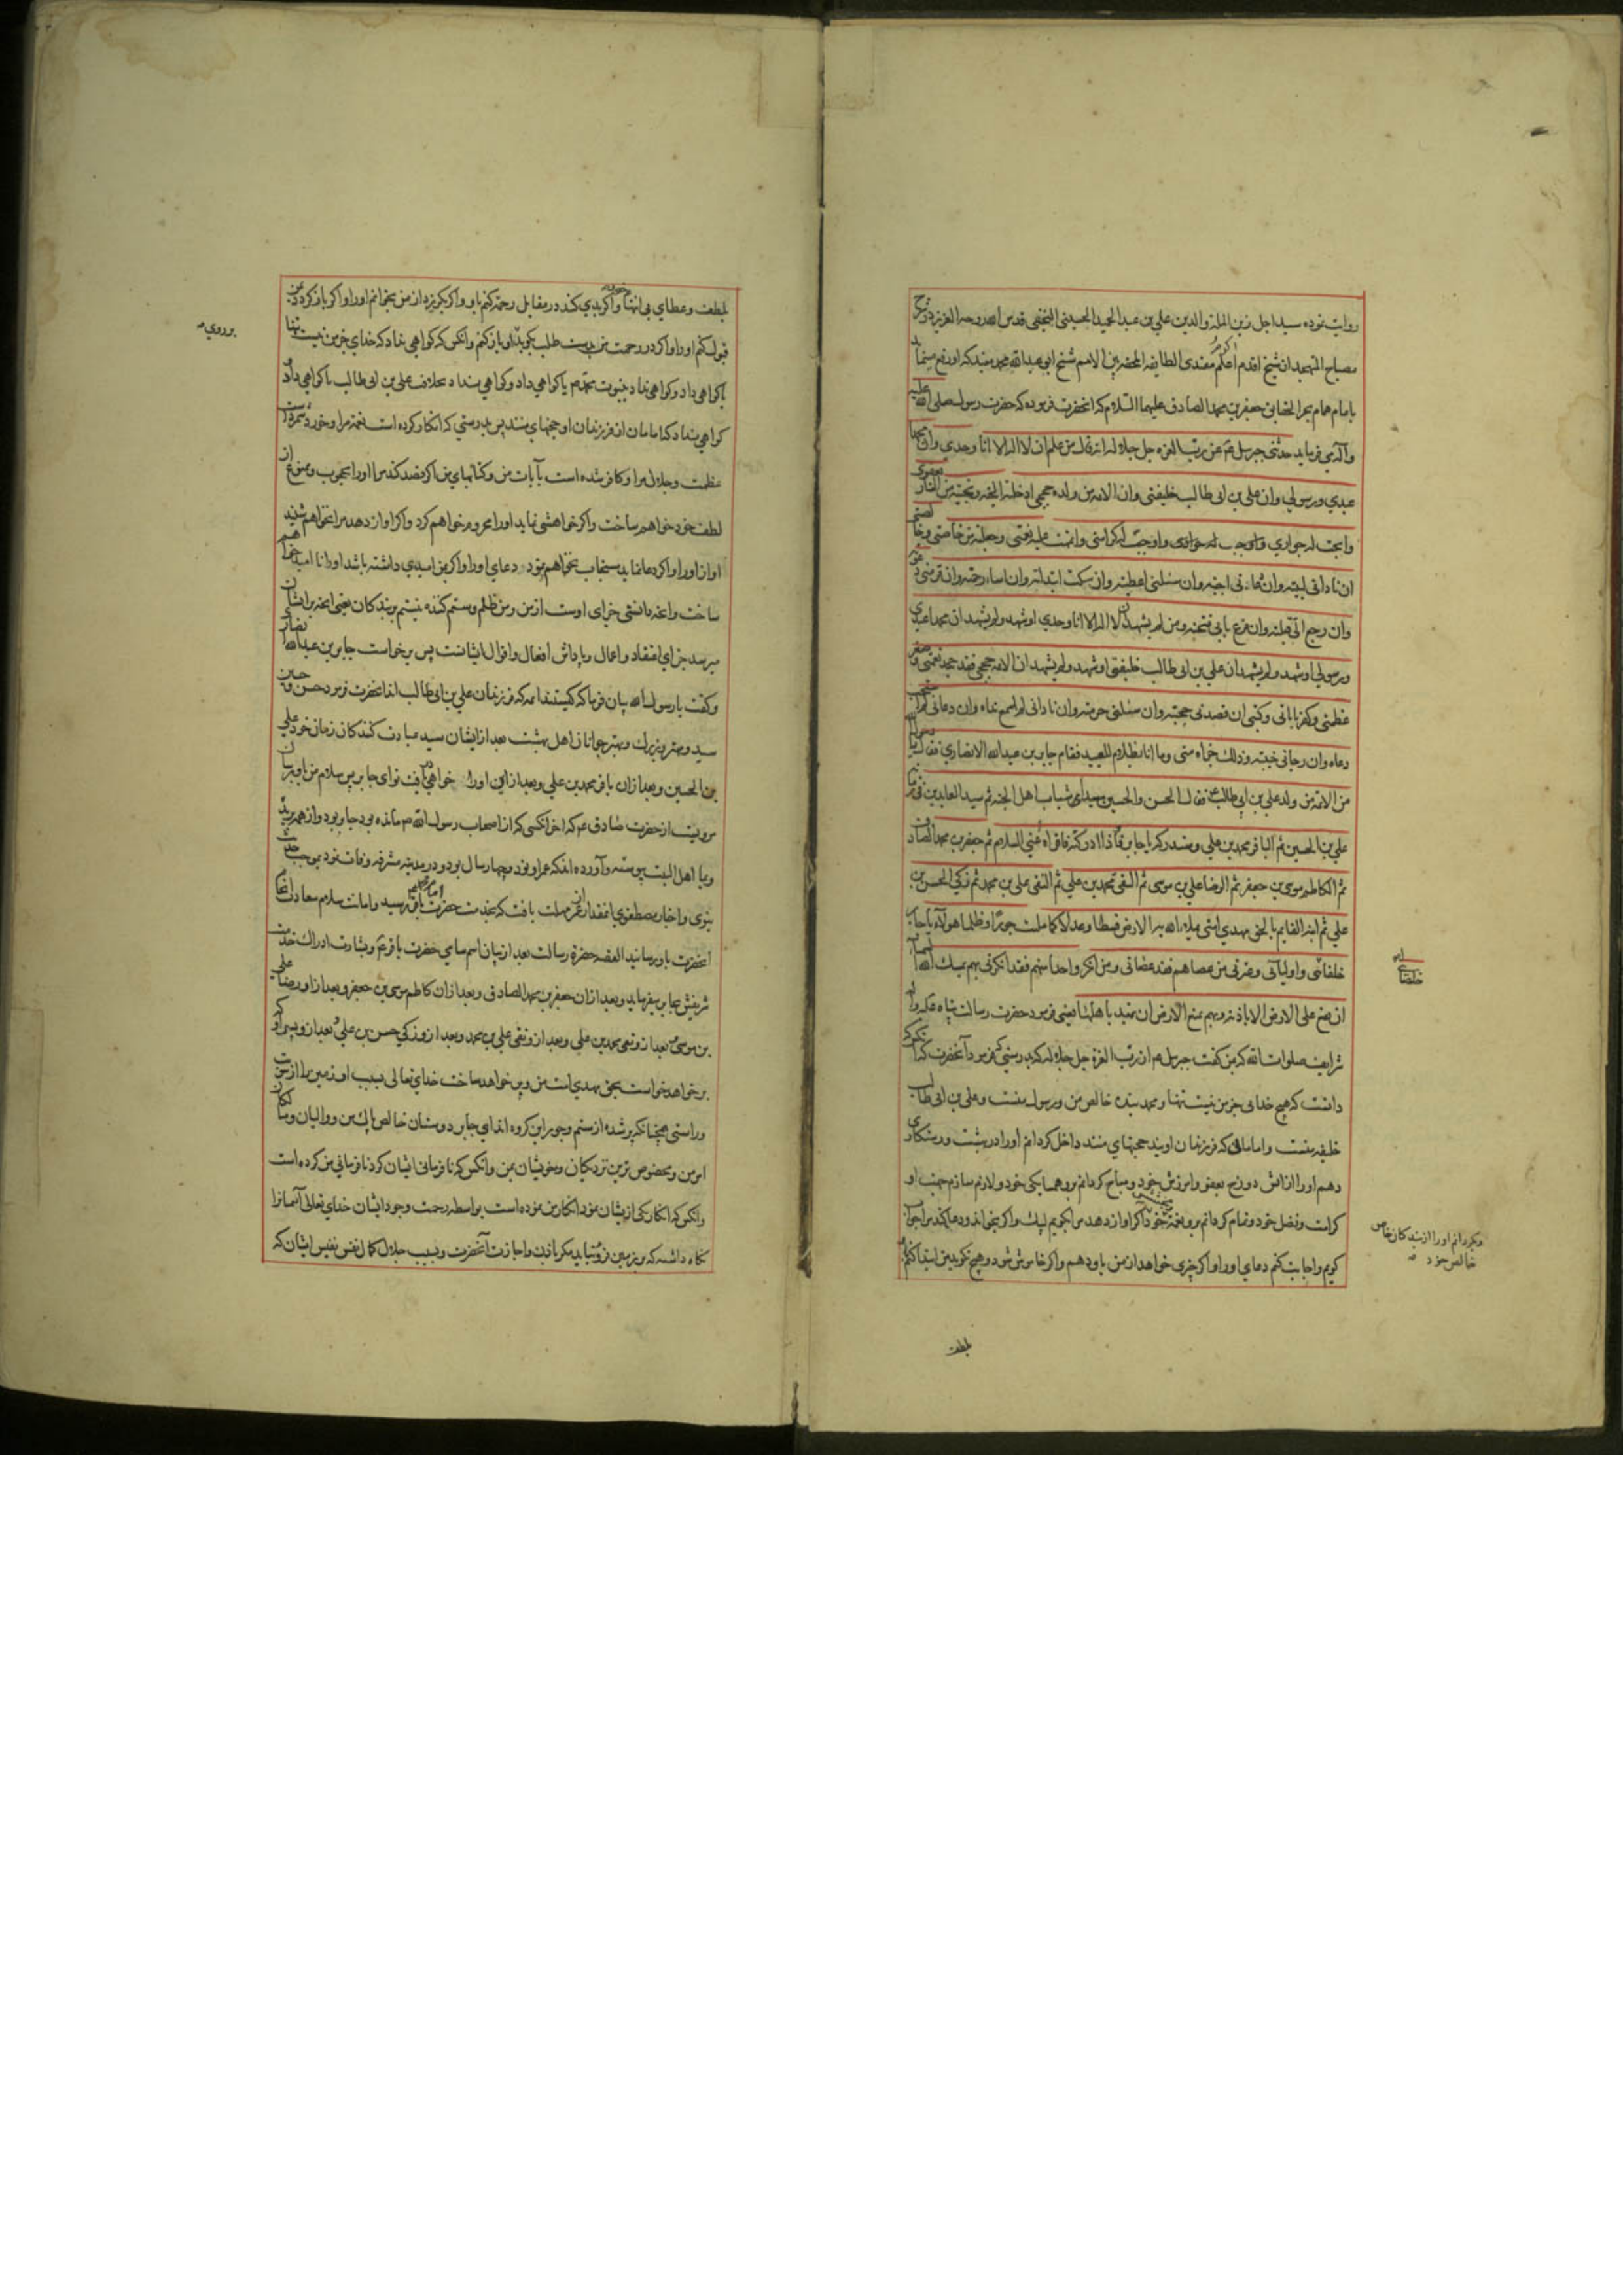 روایت نموده سید اجل زین الملة والدین علی بن عبد الحمید الحسینی النجفی قدس الله روحه العزیز در شرح
مصباح المتهجد از شیخ اقدم مقتدی الطایفه شیخ ابی عبدالله محمد
بامام همام جعفر بن محمد الصادق علیهما السلام که انحضرت فرموده که حضرت رسول صلی الله علیه
وآله می فرماید حدثنی جبرئیل عن رب العزه جل جلاله انه قال من علم ان لا اله الا انا وحدی وان محمدا
عبدی ورسولی وان علی بن ابی طالب خلیفتی وان الائمه من ولده حججی ادخلته الجنه ونجیته من النار بعفوی
وابحت له جواری واوجبت له کرامتی واتممت علیه نعمتی وجعلته من خاصتی وخالصتی
ان نادانی لبیته وان دعانی اجبته وان سئلنی اعطیته وان سکت ابتدأته وان اساء رحمته وان فر منی دعوته
وان رجع الی قبلته وان قرع بابی فتحته ومن لم یشهد ان لا اله الا انا وحدی او شهد ولم یشهد ان محمدا عبدی
ورسولی او شهد ولم یشهد ان علی بن ابی طالب خلیفتی او شهد ولم یشهد ان الائمه حججی فقد جحد نعمتی وصغر
عظمتی وکفر بایاتی وکتبی ان قصدنی حجبته وان سئلنی حرمته وان نادانی لم اسمع نداه وان دعانی لم اسمع
دعاه وان رجانی خیبته وذلك جزاه منی وما انا بظلام للعبید فقام جابر بن عبدالله الانصاری فقال یا رسول الله
من الائمه من ولد علی بن ابی طالب فقال الحسن والحسین سیدی شباب اهل الجنه ثم سید العابدین فی زمانه
علی بن الحسین ثم الباقر محمد بن علی وستدرکه یا جابر فاذا ادرکته فاقراه عنی السلام ثم جعفر بن محمد الصادق
ثم الکاظم موسی بن جعفر ثم الرضا علی بن موسی ثم التقی محمد بن علی ثم النقی علی بن محمد ثم زکی الحسن بن
علی ثم ابنه القایم بالحق مهدی امتی یملاء الله به الارض قسطا وعدلا کما ملئت جورا وظلما هولاء یا جابر
خلفائی واولیائی وعترتی من عصاهم فقد عصانی ومن انکر واحدا منهم فقد انکرنی بهم یمسك الله السماء
ان تقع علی الارض الا باذنه وبهم یمنع الارض ان تمید باهلها یعنی فرمود حضرت رسالت پناه
صلوات الله که بمن گفت جبرئیل از رب العزه جل جلاله که بدرستی که فرمود آنحضرت که هر که
دانست که هیچ خدائی جز من نیست تنها ومحمد بنده خالص من ورسول منست وعلی بن ابی طالب
خلیفه منست وامامانی که فرزندان اویند حجتهای منند داخل گردانم اورا در بهشت ورستکاری
دهم اورا از اتش دوزخ بعفو وامرزش خود ومباح گردانم برو همسایکی خود ولازم سازم جهت او
کرامت وفضل خود وتمام گردانم برو نعمت خود اگر اواز دهد مرا گویم لبیك واگر بخواند ودعا کند مرا
کویم واجابت کنم دعای اورا واکر چیزی خواهد از من باو دهم واکر خاموش شود وهیچ نکوید من ابتدا کنم
خلصائی
وبگردانم اورا از بندکان خاص
خالص خود
بلطف
بلطف وعطای بی انتها واکر بدی کند در مقابل رحم کنم باو واکر بگریزد از من بخوانم اورا واکر باز گردد بمن
قبول کنم اورا واکر در رحمت من طلب بکوبد باو باز کنم وانکس که گواهی نداد که خدای جز من نیست تنها
یا گواهی داد وگواهی نداد بنبوت محمد یا گواهی داد وگواهی نداد بخلافت علی بن ابی طالب یا گواهی داد
گواهی نداد که امامان از فرزندان او حجتهای منند پس بدرستی که انکار کرده است نعمت مرا وخورد شمرده است
عظمت وجلال مرا وکافر شده است بآیات من وکتابهای من اکر قصد کند مرا اورا محجوب وممنوع از
لطف خود خواهم ساخت واکر خواهشی نماید اورا محروم خواهم کرد واکر اواز دهد مرا نخواهم شنید
اواز اورا واکر دعا نماید مستجاب نخواهم نمود دعای اورا واکر بمن امیدی داشته باشد اورا نا امید خواهم
ساخت جزای اوست از من ومن ظلم وستم کننده نیستم بر بندکان یعنی انچه برایشان
میرسد جزای اعتقاد واعمال وپاداش افعال واقوال ایشانست پس برخاست جابر بن عبدالله انصاری
وگفت یا رسول الله بیان فرما که کیستند ائمه که فرزندان علی بن ابی طالب اند انحضرت فرمود حسن وحسین
سید ومهتر وبزرك وبهتر جوانان اهل بهشت بعد از ایشان سید عبادت کنندکان زمان خود علی
بن الحسین وبعد ازان باقر محمد بن علی اورا خواهی یافت تو ای جابر پس سلام من باو برسان
مرویست از حضرت صادق که اخر انکسی که از اصحاب رسول الله مانده بود جابر بود
وبا اهل البیت پیوسته وآورده اند که عمر او نود وچهار سال بود ودر مدینه مشرفه وفات نمود بموجب حدیث
نبوی واخبار مصطفوی مهلت یافت که بخدمت حضرت باقر رسید وامانت سلام سعادت
انحضرت باو رسانید القصه حضرت رسالت بعد از بیان اسم سامی حضرت باقر وبشارت ادراك خدمت
شریفش بجابر میفرماید وبعد ازان جعفر بن محمد الصادق وبعد ازان کاظم موسی بن جعفر وبعد ازاو رضا علی
بن موسی بعد ازو تقی محمد بن علی وبعد ازو نقی علی بن محمد وبعد ازو زکی حسن بن علی وبعد ازو پسر او که
برخواهد خواست بحق مهدی امت من وپر خواهد ساخت خدای تعالی بسبب او زمین را از عدالت
وراستی همچنانکه پر شده از ستم وجور این گروه اند ای جابر دوستان خالص پاك من ووالیان وصاحبان
امر من ومخصوص ترین نزدیکان وخویشان من وانکس که نافرمانی ایشان کرد نافرمانی من کرده است
وانکس که انکار یکی از ایشان نمود انکار من نموده است بواسطه رحمت وجود ایشان خدای تعالی آسمانرا
نگاه داشته که بر زمین فرو نیاید مگر باذن واجازت آنحضرت وبسبب جلال کمال نفس نفیس ایشان که
بر روی